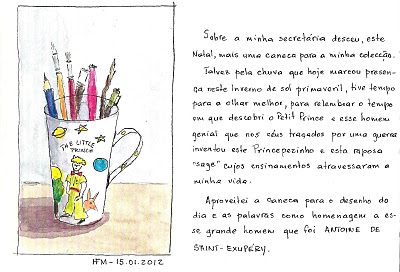 THE LITTLE
PRINCE
HFM - 15.01.2012
Sobre a minha secretária desceu, este
Natal, mais uma caneca para a minha colecção.
Talvez pela chuva que hoje marcou presen-
ça neste Inverno de sol primaveril, tive tempo
para a olhar melhor, para relembrar o tempo
em que descobri o Petit Prince e esse homem
genial que nos céus traçados por uma guerra
inventou este Princepezinho e esta raposa
"sage" cujos ensinamentos atravessaram a
minha vida.
Aproveitei a caneca para o desenho do
dia e as palavras como homenagem a es-
se grande homem que foi ANTOINE DE
SAINT-EXUPÉRY.